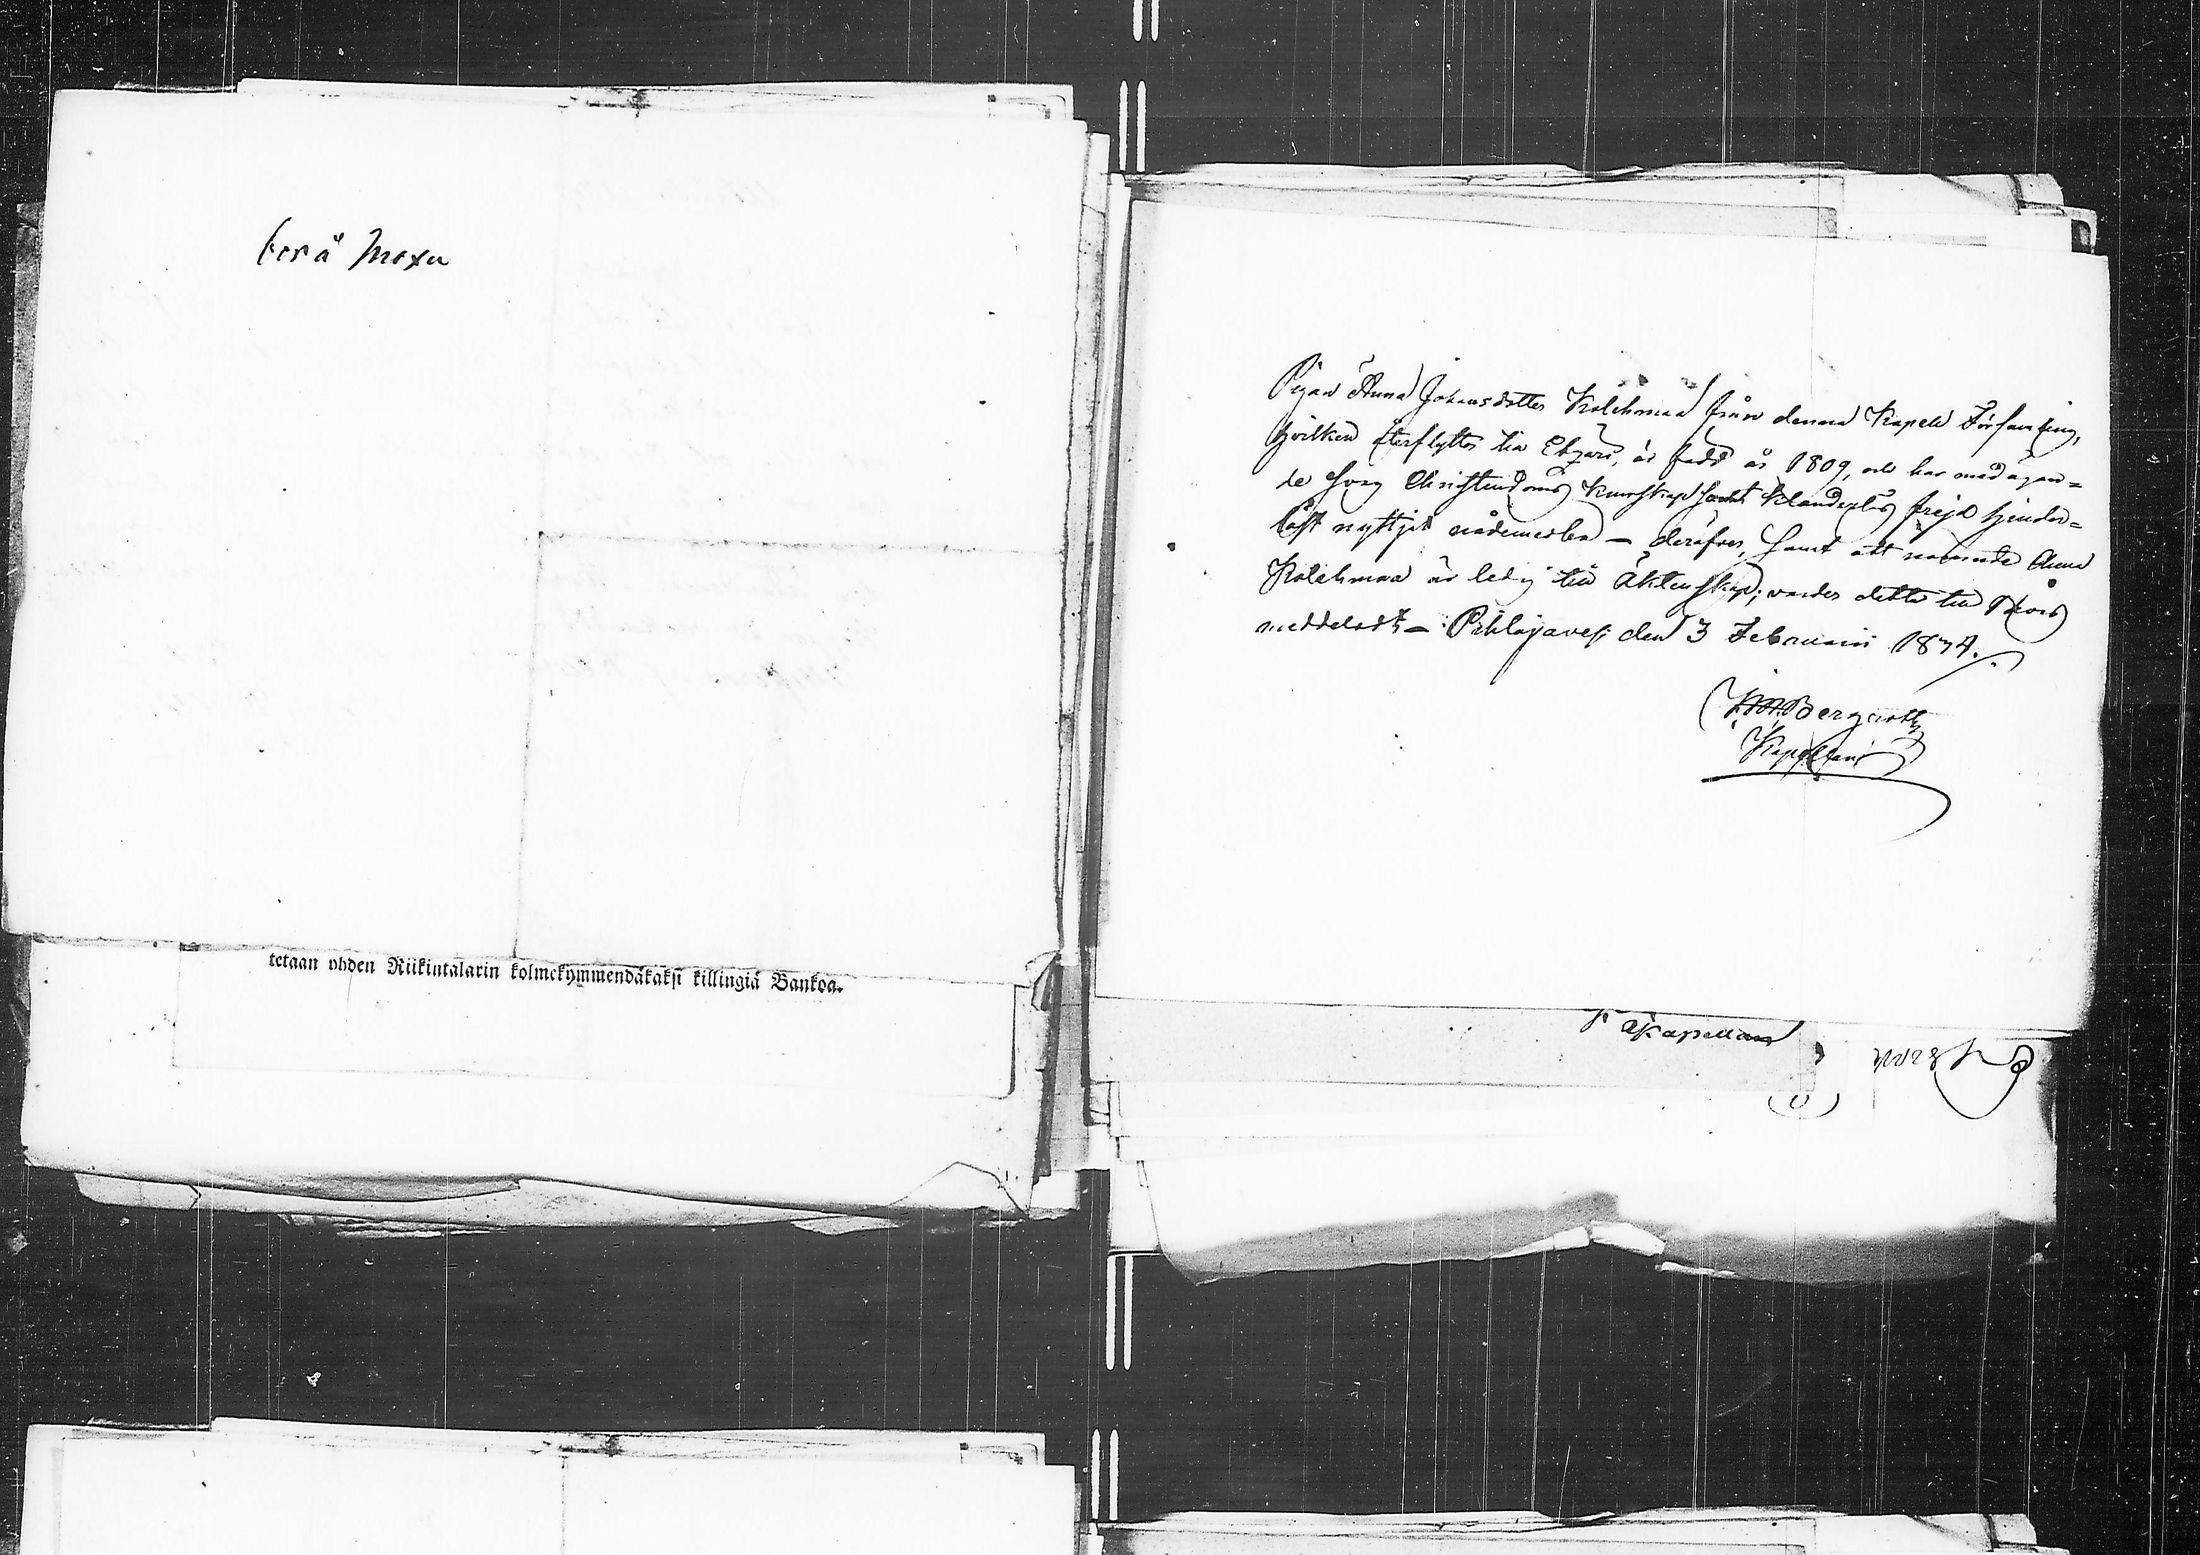 tetaan yhden Riikintalarin kolmekymmendäkaksi killingiä Bankoa.
Pigan Anna Johansdotter Kolehmaa från denna Kapell Församling,
hvilken återflyttar till Etzäri, är född år 1809, och har med ägan=
de svag Christendoms Kunskap samt klanderlös frejd hinder=
löst nyttjat nådemedlen – derföre, samt att nämnde Anna
Kolehmaa är ledig till Äktenskap; varder detta till Bevis
meddeladt – Pihlajavesi den 3 Februarii 1834.
Bergroth
Kapellan
Kapellan